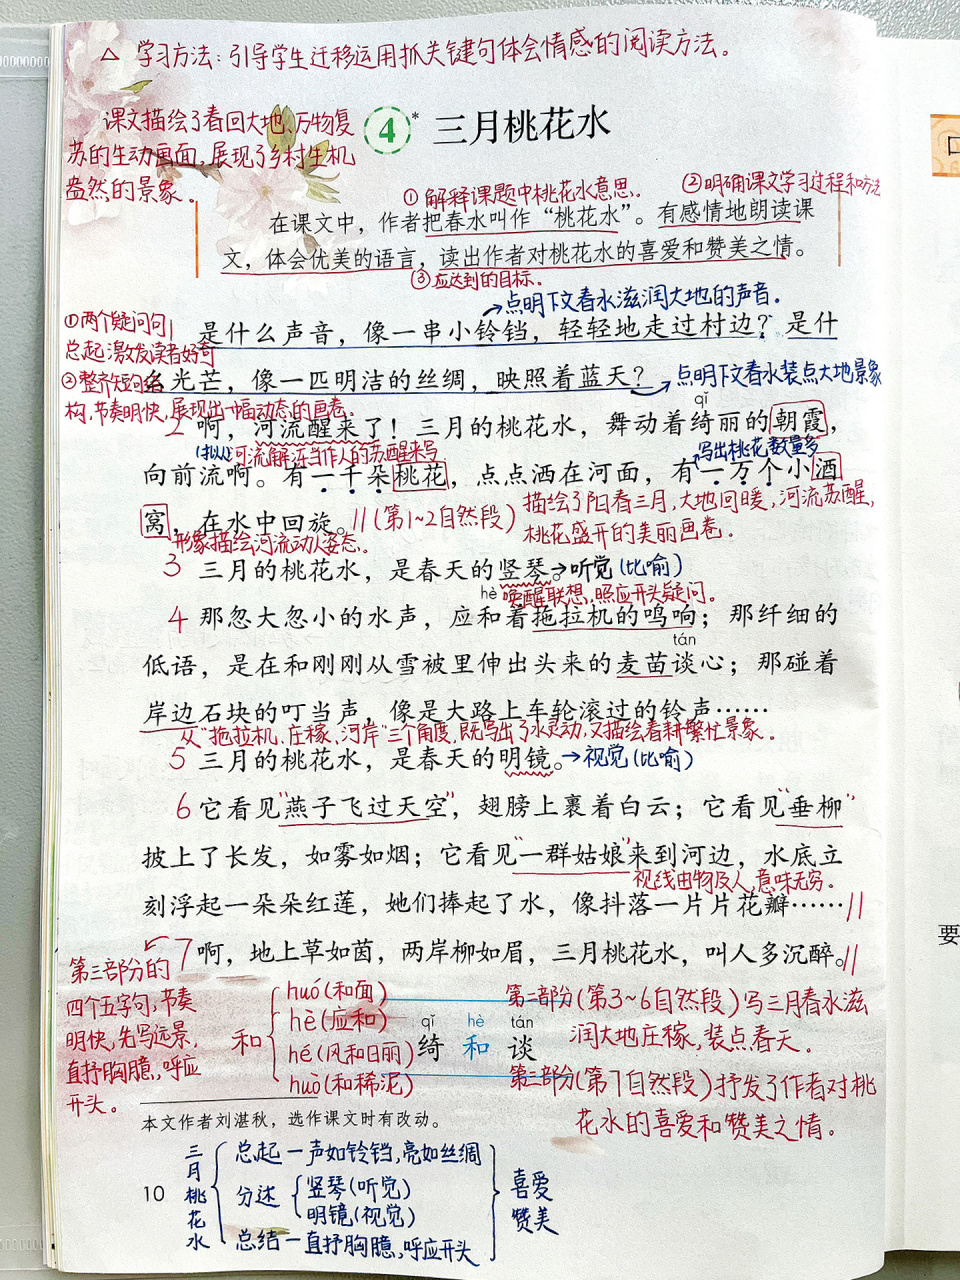 △ 学习方法:引导学生迁移运用抓关键句体会情感的阅读方法。
课文描绘了春回大地、万物复
苏的生动画面,展现了乡村生机
盎然的景象。
4* 三月桃花水
①解释课题中桃花水意思.
②明确课文学习过程和方法
在课文中，作者把春水叫作“桃花水”。有感情地朗读课
文，体会优美的语言，读出作者对桃花水的喜爱和赞美之情。
③应达到的目标.
→点明下文春水滋润大地的声音.
①两个疑问句
总起,激发读者好奇
②整齐短句结
构,节奏明快,展现出一幅动态的画卷.
1 是什么声音，像一串小铃铛，轻轻地走过村边？是什
么光芒，像一匹明洁的丝绸，映照着蓝天？
→点明下文春水装点大地景象
qǐ
2 啊，河流醒来了！三月的桃花水，舞动着绮丽的朝霞，
(拟人)河流解冻当作人的苏醒来写
写出桃花数量多
向前流啊。有一千朵桃花，点点洒在河面，有一万个小酒
窝，在水中回旋。//(第1~2自然段)
描绘了阳春三月,大地回暖,河流苏醒,
桃花盛开的美丽画卷.
形象描绘河流动人姿态.
3 三月的桃花水，是春天的竖琴。→听觉(比喻)
hè
唤醒联想,照应开头疑问.
4 那忽大忽小的水声，应和着拖拉机的鸣响；那纤细的
tán
低语，是在和刚刚从雪被里伸出头来的麦苗谈心；那碰着
岸边石块的叮当声，像是大路上车轮滚过的铃声……
从“拖拉机、庄稼、河岸”三个角度,既写出了水灵动,又描绘春耕繁忙景象.
5 三月的桃花水，是春天的明镜。→视觉(比喻)
6 它看见“燕子飞过天空”，翅膀上裹着白云；它看见“垂柳”
披上了长发，如雾如烟；它看见“一群姑娘”来到河边，水底立
视线由物及人,意味无穷.
刻浮起一朵朵红莲，她们捧起了水，像抖落一片片花瓣……//
7 啊，地上草如茵，两岸柳如眉，三月桃花水，叫人多沉醉。//
第三部分的
四个五字句,节奏
明快,先写远景,
直抒胸臆,呼应
开头。
和
huó(和面)
hè(应和)
hé(风和日丽)
huò(和稀泥)
qǐ hè tán
绮 和 谈
第二部分(第3~6自然段)写三月春水滋
润大地庄稼,装点春天.
第三部分(第7自然段)抒发了作者对桃
花水的喜爱和赞美之情.
本文作者刘湛秋，选作课文时有改动。
10
三月桃花水
总起—声如铃铛,亮如丝绸
分述
竖琴(听觉)
明镜(视觉)
总结—直抒胸臆,呼应开头
喜爱
赞美
要